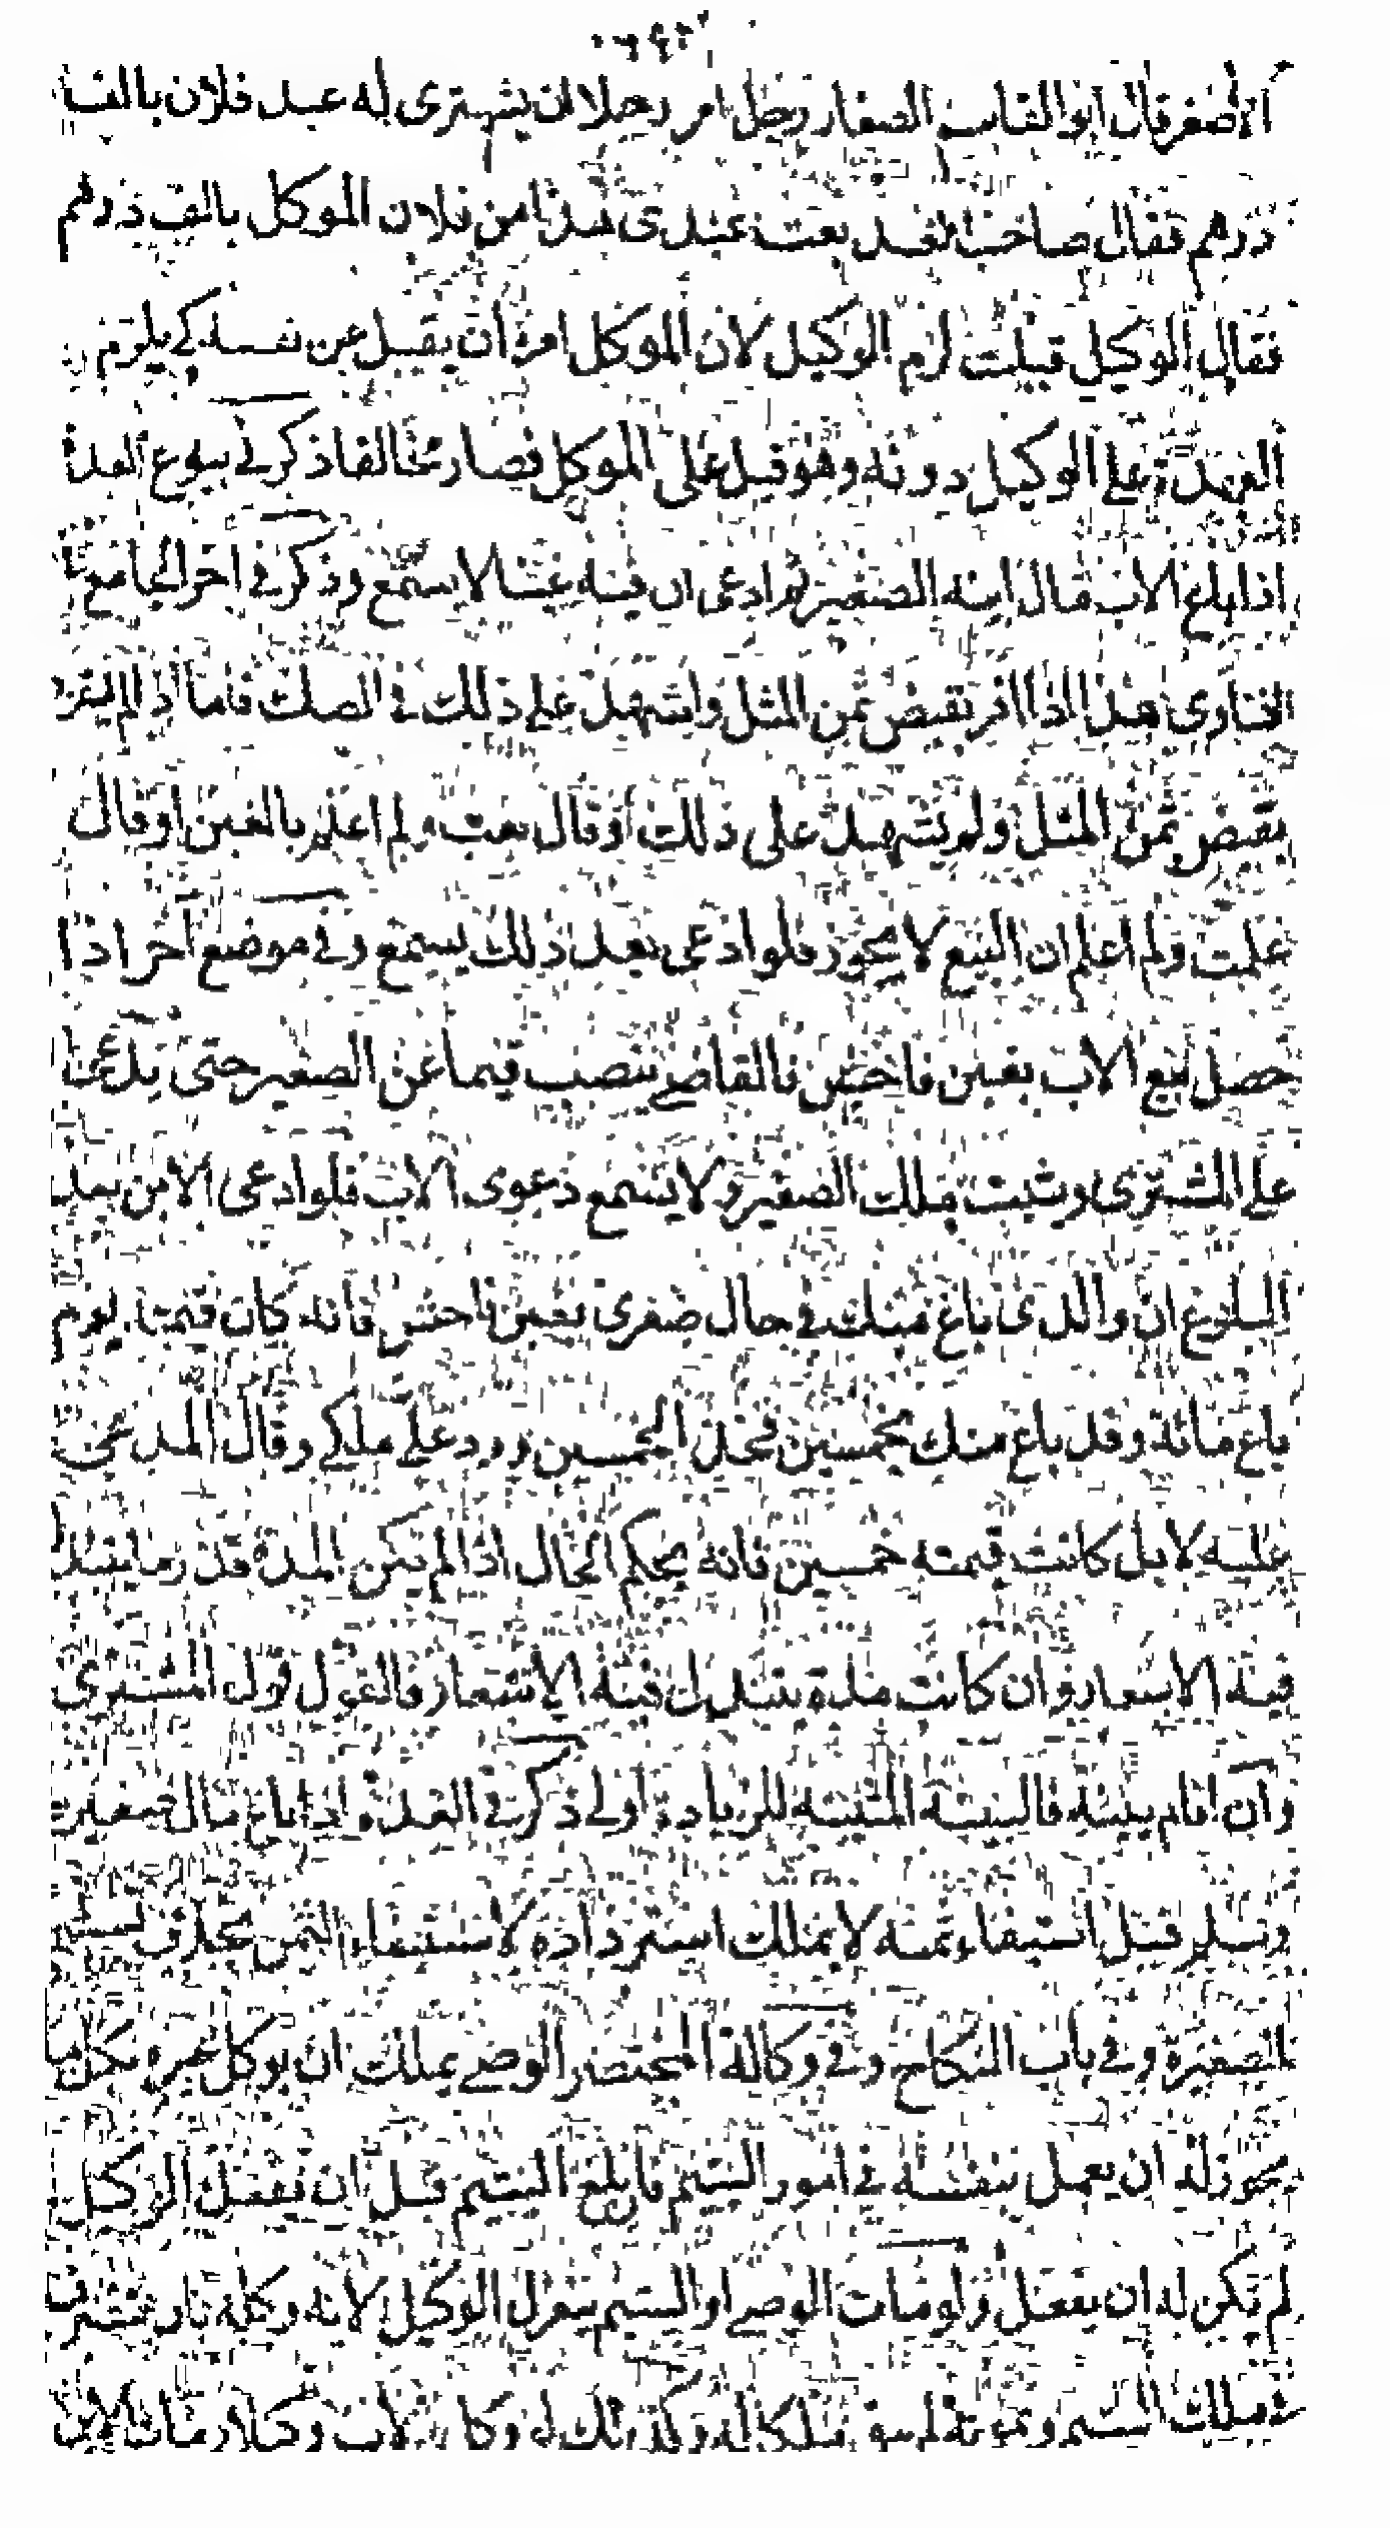 الاصغر قال ابو القاسم الصفار رجل امر رجلا ان يشترى له عبد فلان بالف
درهم فقال صاحب العبد بعت عبدى هذا من فلان الموكل بالف درهم
فقال الوكيل قبلت لزم الوكيل لان الموكل امره ان يقبل عن نفسه كى يلزم
العهدة على الوكيل دونه وهو قبل على الموكل فصار مخالفا ذكر فى بيوع العدة
اذا باع الاب مال ابنه الصغير ثم ادعى ان فيه غبنا لا يسمع وذكر فى آخر الجامع
الفتاوى هذا اذا اقر بقبض ثمن المثل واشهد على ذلك فى الصك فاما اذا لم يقر
بقبض ثمن المثل ولم يشهد على ذلك او قال بعت ولم اعلم بالغبن او قال
علمت ولم اعلم ان البيع لا يجوز فلو ادعى بعد ذلك يسمع وفى موضع آخر اذا
حصل بيع الاب بغبن فاحش فالقاضى ينصب قيما عن الصغير حتى يدعى
على المشترى ويثبت ملك الصغير ولا يسمع دعوى الاب فلو ادعى الابن بعد
البلوغ ان والدى باع منك فى حال صغرى بغبن فاحش فانه كان قيمته يوم
باع مائة وقد باع منك بخمسين فخذ الخمسين ورد على ملكى وقال المدعى
عليه لا بل كانت قيمته خمسين فانه يحكم الحال اذا لم تكن المدة قدر ما يتبدل
فيه الاسعار وان كانت مدة يتبدل فيه الاسعار فالقول قول المشترى
وان اقام بينة فالبينة المثبتة للزيادة اولى ذكر فى العدة اذا باع مال صغيره
وسلم قبل استيفاء ثمنه لا يملك استرداده لاستيفاء الثمن بخلاف
الصغيرة وفى باب النكاح وفى وكالة المختصر الوصى يملك ان يوكل غيره بكل ما
يجوز له ان يعمل بنفسه فى امور اليتيم فان بلغ اليتيم قبل ان يفعل الوكيل
لم يكن له ان يفعل ولو مات الوصى او اليتيم ينعزل الوكيل لانه وكله بان يتصرف
فى ملك اليتيم وبموته لم يبق ملكا له وكذلك لو وكل الاب وكيلا ومات الابن